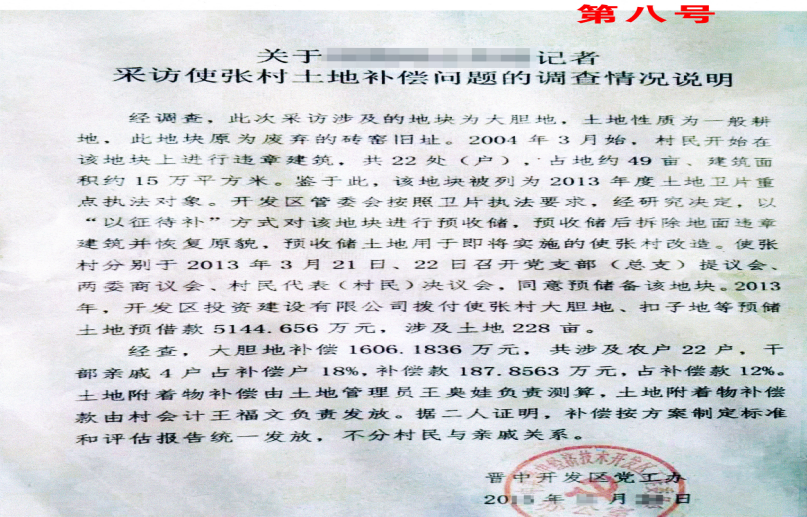 第八号
关于 记者
采访使张村土地补偿问题的调查情况说明
经调查，此次采访涉及的地块为大胆地，土地性质为一般耕
地，此地块原为废弃的砖窑旧址。2004 年 3 月始，村民开始在
该地块上进行违章建筑，共 22 处（户），占地约 49 亩、建筑面
积约 15 万平方米。鉴于此，该地块被列为 2013 年度土地卫片重
点执法对象。开发区管委会按照卫片执法要求，经研究决定，以
“以征待补”方式对该地块进行预收储，预收储后拆除地面违章
建筑并恢复原貌，预收储土地用于即将实施的使张村改造。使张
村分别于 2013 年 3 月 21 日、22 日召开党支部（总支）提议会、
两委商议会、村民代表（村民）决议会，同意预储备该地块。2013
年，开发区投资建设有限公司拨付使张村大胆地、扣子地等预储
土地预借款 5144.656 万元，涉及土地 228 亩。
经查，大胆地补偿 1606.1836 万元，共涉及农户 22 户，干
部亲戚 4 户占补偿户 18%，补偿款 187.8563 万元，占补偿款 12%。
土地附着物补偿由土地管理员王奂娃负责测算，土地附着物补偿
款由村会计王福文负责发放。据二人证明，补偿按方案制定标准
和评估报告统一发放，不分村民与亲戚关系。
晋中开发区党工办
201 年 月 日